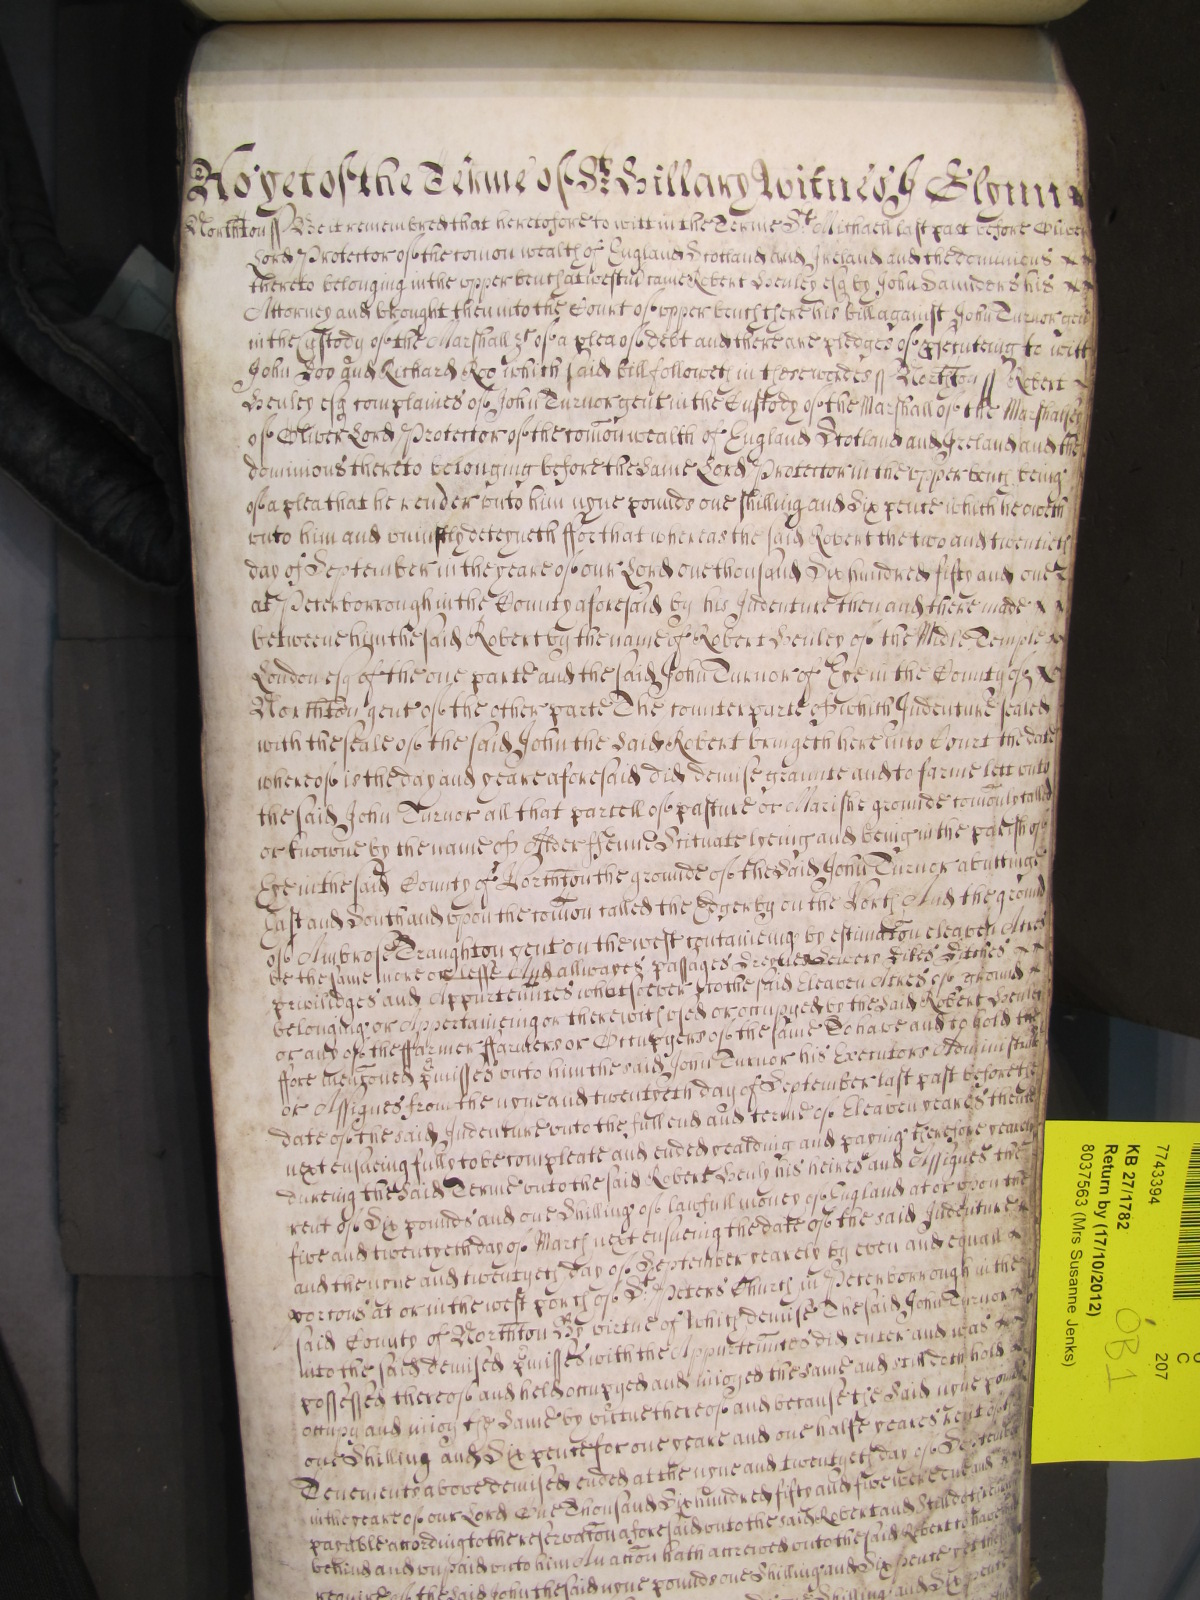 As yet of the Terme of St Hillary Witnes J Glynn
Northton ss Be it remembred that heretofore to witt in the Terme St Michaell last past before Oliver
Lord Protector of the comon wealth of England Scotland and Ireland and the dominions
thereto belonging in the upper bench at westm came Robert Henley esq by John Saunders his
Attorney and brought then into the Court of upper bench there his bill against John Turnor gent
in the Custody of the Marshall &c of a plea of debt and there are pledges of prosecuteing to witt
John Doo and Richard Roo which said bill followeth in these wordes ss Northton ss Robert
Henley esq complaines of John Turnor gent in the Custody of the Marshall of the Marshalsey
of Oliver Lord Protector of the comon wealth of England Scotland and Ireland and the
dominions thereto belonging before the same Lord Protector in the upper bench being
of a plea that he render unto him nyne pounds one shilling and six pence which he oweth
unto him and uniustly deteyneth ffor that whereas the said Robert the two and twentieth
day of September in the yeare of our Lord one thousand six hundred fifty and one
at Peterborrough in the County aforesaid by his Indenture then and there made
betweene him the said Robert by the name of Robert Henley of the Midle Temple
London esq of the one parte and the said John Turnor of Eye in the County of
Northton gent of the other parte The counterparte of which Indenture sealed
with the seale of the said John the said Robert bringeth here into Court the date
whereof is the day and yeare aforesaid did demise graunte and to farme lett unto
the said John Turnor all that parcell of pasture or Marishe grounde comonly called
or knowne by the name of Alder ffenne Scituate lyeing and being in the parish of
Eye in the said County of Northton the grounde of the said John Turnor abuttinge
East and South and upon the comon called the Edgerby on the North And the ground
of Ambrose Draughton gent on the west contaieing by estimation eleaven Acres
be the same more or lesse And all wayes passages Sewers dikes ditches
priviledges and Appurtennces whatsoever to the said Eleaven Acres of ground
belonging or Appertaineing or therewith used or occupyed by the said Robert Henley
or any of the fformer ffarmers or Occupyers of the same To have and to hold the
fforemenconed pmisses unto him the said John Turnor his Executors Administrators
or Assignes from the nyne and twentyeth day of September last past before the
date of the said Indenture unto the full end and terme of Eleaven yeares thence
next ensueing fully to be compleate and ended yealding and paying therefore yearely
dureing the said Terme unto the said Robert Henly his heires and Assignes the
rent of Six pounds and one Shilling of lawfull money of England at or upon the
five and twentyeth day of March next ensueing the date of the said Indenture
and the nyne and twentyeth day of September yearely by even and equall
porcons at or in the west porch of St Peters Church in Peterborrough in the
said County of Northton By virtue of which demise The said John Turnor
into the said demised pmisses with the Appurtennces did enter and was
possessed thereof and held occupyed and inioyed the same and still doth hold
occupy and inioy the same by virtue thereof and because the said nyne pounds
one Shilling and Six pence for one yeare and one halfe yeares rent of the
Tenements above demised ended at the nyne and twentyeth day of September
in the yeare of our Lord One Thousand Six hundred fifty and five were due and
payable according to the reservacon aforesaid unto the said Robert and Still doth remaine
behind and unpaid unto him An accon hath accrewed unto the said Robert to have and
require of the said John the said nyne pounds one Shilling and Six pence yet the
Shilling and Six pence
7743394
KB 27/1782
Return by (17/10/2012)
8037563 (Mrs Susanne Jenks)
207
C
OB1